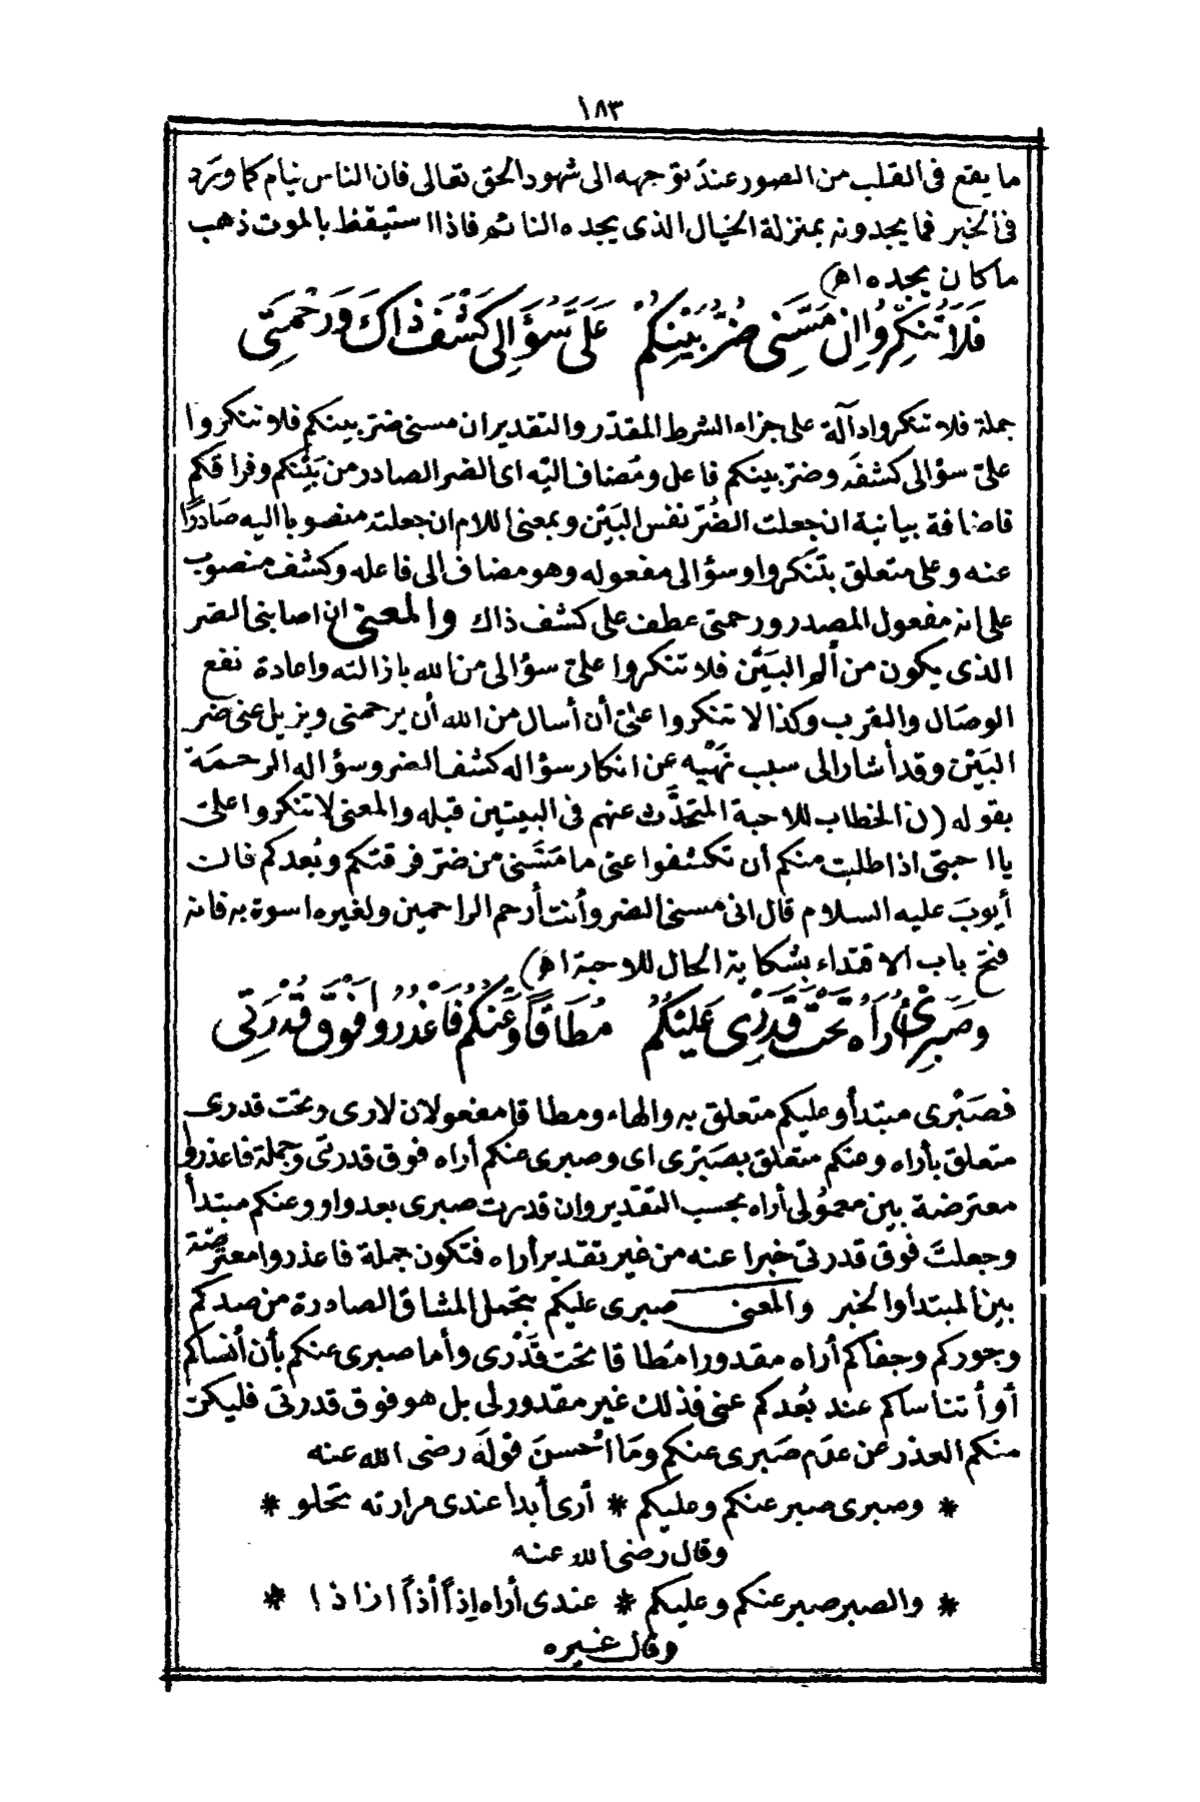 ١٨٣
ما يقع فى القلب من الصور عند توجهه الى شهود الحق تعالى فان الناس نيام كما ورد
فى الخبر فما يجدونه بمنزلة الخيال الذى يجده النائم فاذا استيقظ بالموت ذهب
ما كان يجده اهـ)
فَلَا تُنْكِرُوا إِنْ مَسَّنِى ضُرُّ بَيْنِكُمْ عَلَىَّ سُؤَالِى كَشْفَ ذَاكَ وَرَحْمَتِى
جملة فلا تنكروا دآلة على جزاء الشرط المقدّر والتقدير ان مسنى ضر بينكم فلا تنكروا
علىّ سؤالى كشفَه وضرّ بينكم فاعل ومُضاف اليّه اى الضر الصادر من بَيْنكم وفراقكم
فاضافة بيانية ان جعلت الضُرّ نفس البَيْن وبمعنى اللام ان جعلته منصوبا اليه صَادرًا
عنه وعلى متعلق بتَنكروا وسؤالى مفعوله وهو مضاف الى فاعله وكشف منصوب
على انه مفعول المصدر ورحمتى عطف على كشف ذاك والمعنى ان اصابنى الضر
الذى يكون من ألم البَيْن فلا تنكروا علىّ سؤالى من الله بازالته واعادة نفع
الوصَال والقرب وكذا لا تنكروا علىّ أن أسال من الله أن يرحمنى ويزيل عنى ضر
البَيْن وقد أشار الى سبب نَهْيه عن انكار سؤاله كشف الضر وسؤاله الرحمَة
بقوله (ن الخطاب للاحبة المتحَدَّث عنهم فى البيتين قبله والمعنى لا تنكروا علىّ
يا احبتى اذا طلبت منكم أن تكشفوا عنى ما مَسَّنى من ضر فرقتكم وبُعدكم قالت
أيوبَ عليه السلام قال انى مسنى الضر وأنت أرحم الراحمين ولغيره اسوة به فانه
فتح باب الاقتداء بشكاية الحال للاحبة اهـ)
وَصَبْرِى أُرَاهُ تَحْتَ قَدْرِى عَلَيْكُمُ مُطَاقًا وَعَنْكُمْ فَاعْذُرُوا فَوْقَ قُدْرَتِى
فصَبْرى مبتدأ وعليكم متعلق به والهاء ومطاقا مفعولان لارى وتحت قدرى
متعلق بأراه وعنكم متعلق بصَبْرى اى وصبرى عنكم أراه فوق قدرتى وجملة فاعذروا
معترضة بين معمُولى أراه بحسب التقدير وان قدرت صبرى بعد واو وعنكم مبتدأ
وجعلت فوق قدرتى خبرا عنه من غير تقدير أراه فتكون جملة فاعذروا معترضة
بين المبتدأ والخبر والمعنى صبرى عليكم بتحمل المشاق الصادرة من صدكم
وجوركم وجفاكم أراه مقدورا مُطاقا تحت قَدْرى وأما صبرى عنكم بأن أنساكم
أو أتناساكم عند بُعدكم عنى فذلك غير مقدور لى بل هو فوق قدرتى فليكن
منكم العذر عن عدَم صَبرى عنكم وَما أحْسنَ قولَه رضى الله عنه
* وصبرى صبر عنكم وعليكم * أرى أبدا عندى مرارته تحلو *
وقال رضى الله عنه
* والصبر صبر عنكم وعليكم * عندى أراه إذاً أذاً ازاذا *
وقال غيره